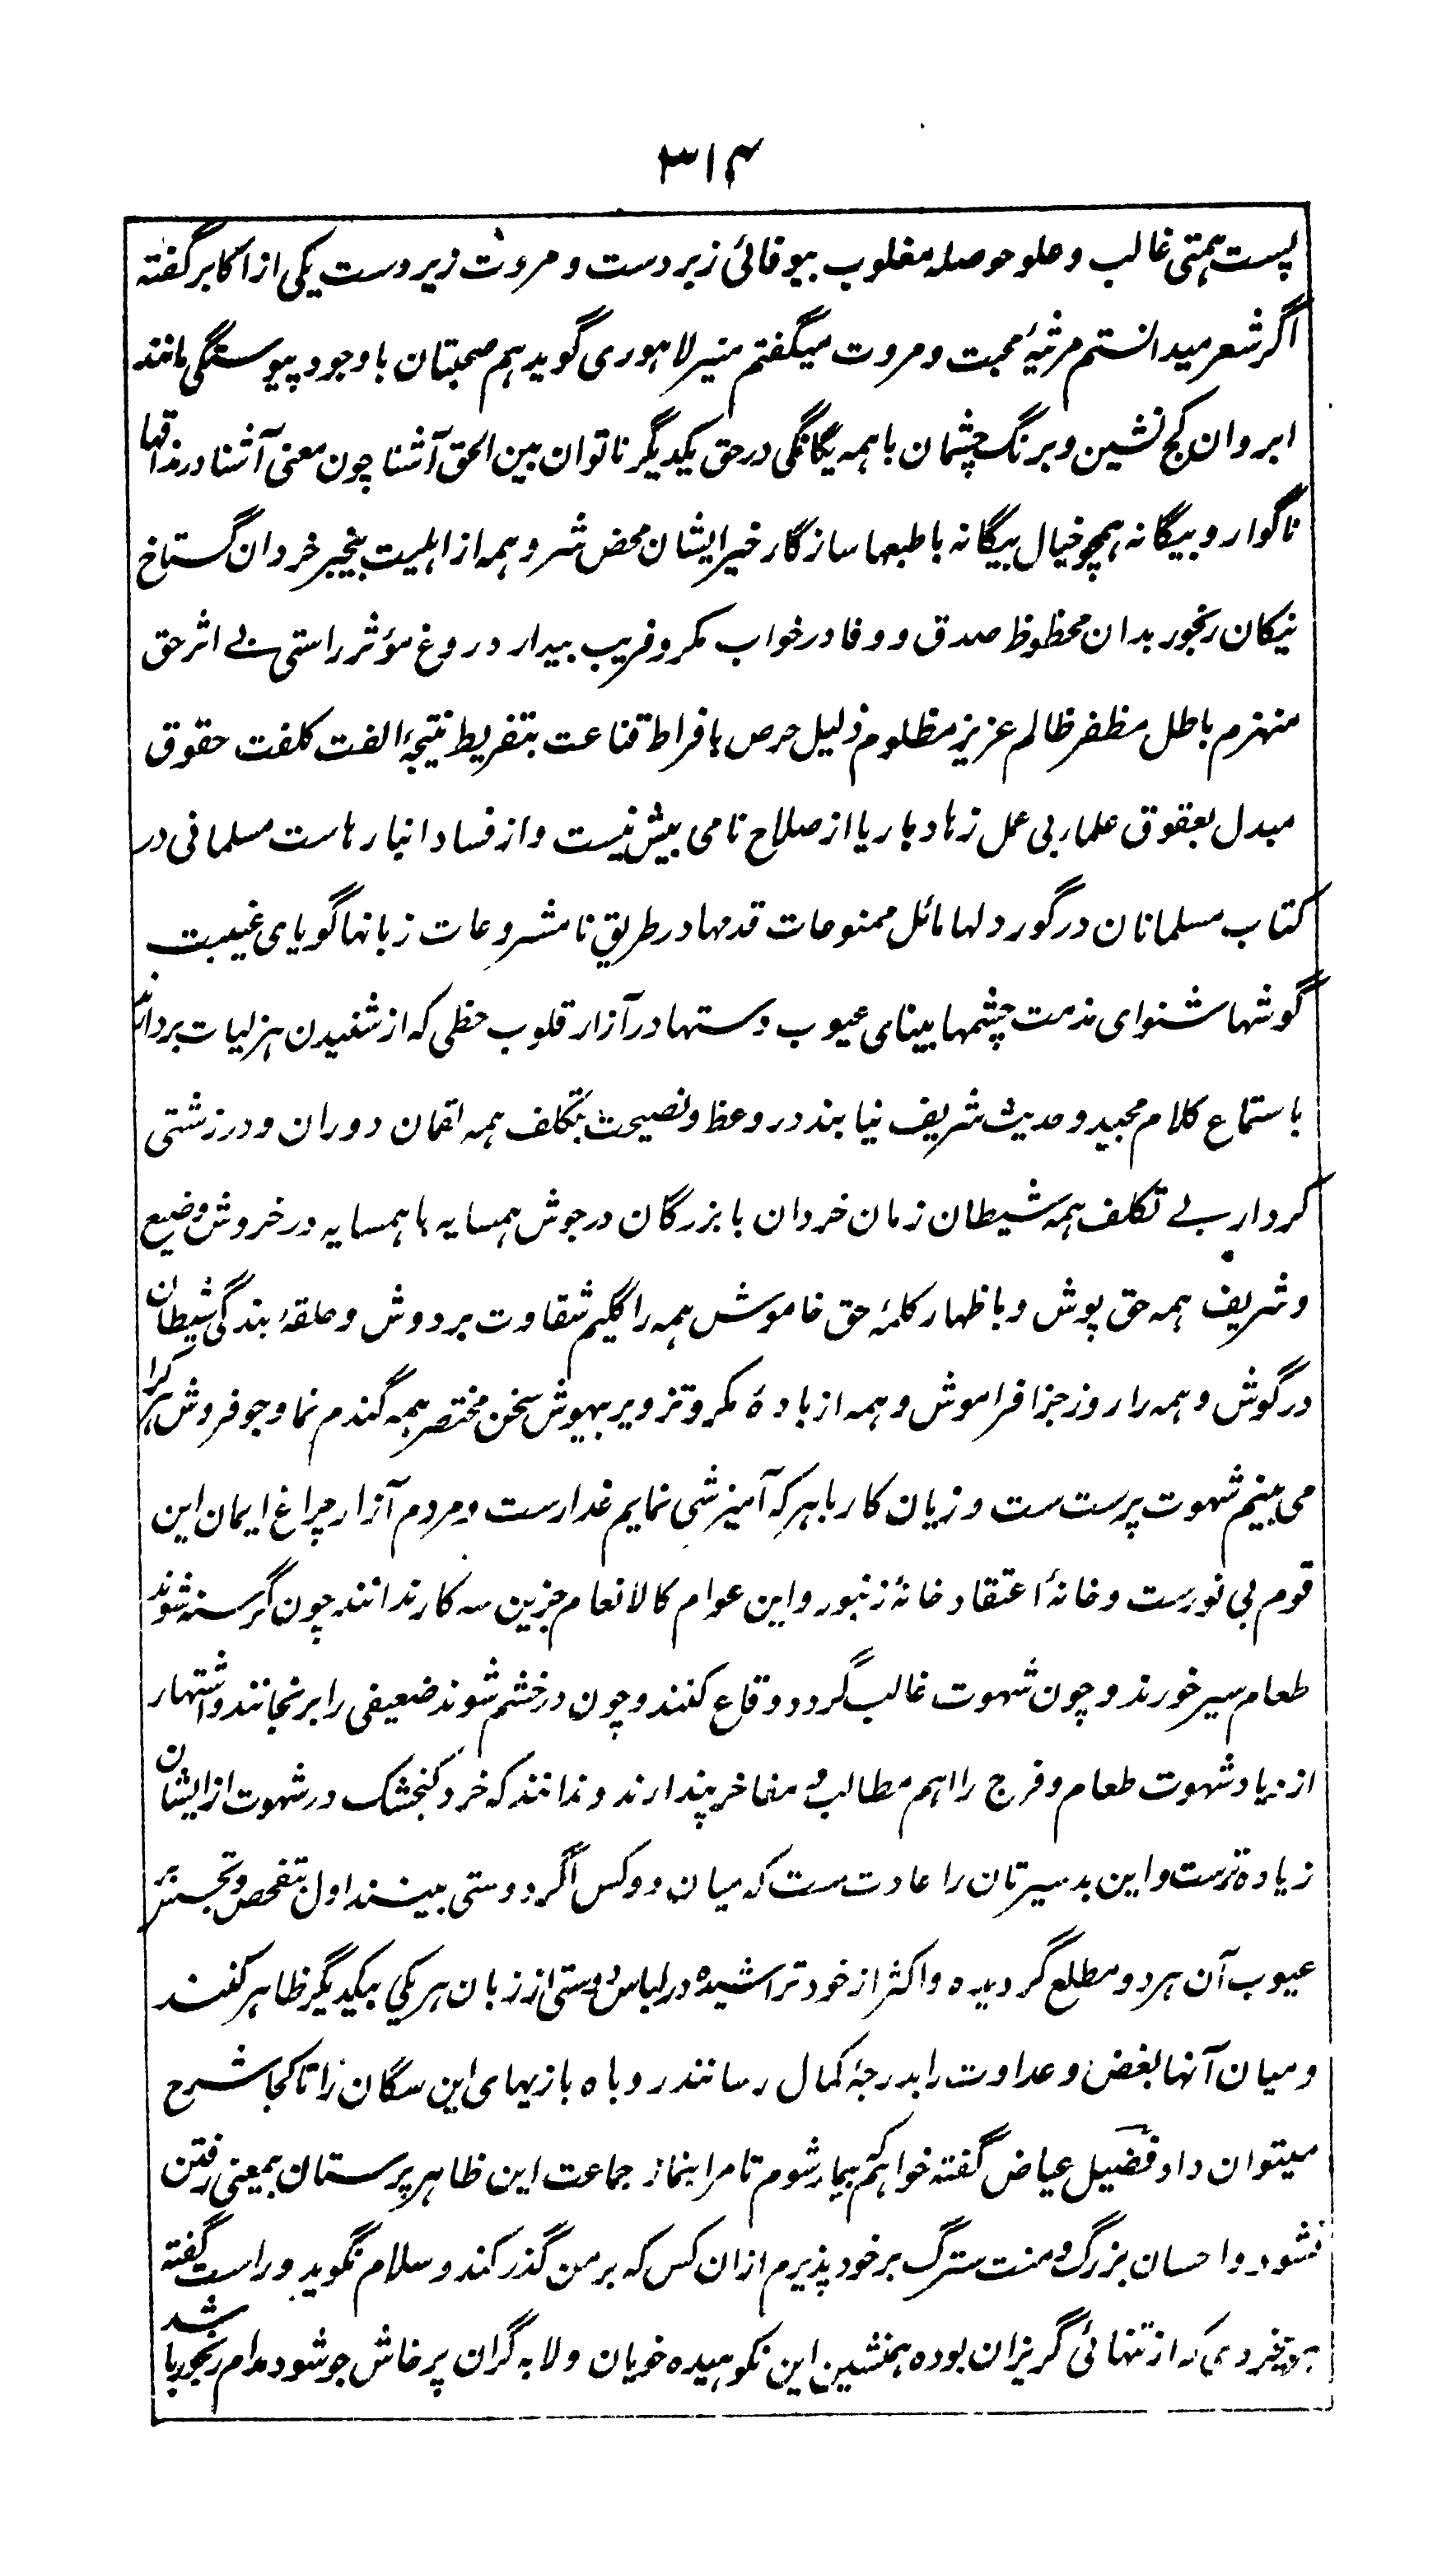 ۳۱۴
پست ہمتی غالب و علو حوصلہ مغلوب بیوفائی زبردست و مروت زیردست یکی از اکابر گفتہ
اگر شعر میدانستم مرثیۂ محبت و مروت میگفتم منیر لاہوری گوید ہم صحبتان باوجود پیوستگی مانند
ابروان کج نشین و برنگ چشمان باہمہ یگانگی در حق یکدیگر ناتوان بین الحق آشنا چون معنی آشنا در مذاقہا
ناگوار و بیگانہ ہمچو خیال بیگانہ با طبعہا سازگار خیر ایشان محض شر و ہمہ از اہلیت بیخبر خردان گستاخ
نیکان رنجور بدان محظوظ صدق و وفا در خواب مکر و فریب بیدار دروغ مؤثر راستی بے اثر حق
منہزم باطل مظفر ظالم عزیز مظلوم ذلیل حرص بافراط قناعت بتفریط نتیجۂ الفت کلفت حقوق
مبدل بعقوق علما بی عمل زہاد با ریا از صلاح نامی بیش نیست و از فساد انبارہاست مسلمانی در
کتاب مسلمانان در گور دلہا مائل ممنوعات قدمہا در طریق نامشروعات زبانہا گویای غیبت
گوشہا شنوای مذمت چشمہا بینای عیوب دستہا در آزار قلوب حظی کہ از شنیدن ہزلیات بردارند
باستماع کلام مجید و حدیث شریف نیابند در وعظ و نصیحت بتکلف ہمہ لقمان دوران و در زشتی
کردار بے تکلف ہمہ شیطان زمان خردان با بزرگان در جوش ہمسایہ با ہمسایہ در خروش وضیع
و شریف ہمہ حق پوش و باظہار کلمۂ حق خاموش ہمہ را گلیم شقاوت بر دوش و حلقۂ بندگی شیطان
در گوش و ہمہ را روز جزا فراموش و ہمہ از بادۂ مکر و تزویر بیہوش سخن مختصر ہمہ گندم نما و جو فروش ہر کرا
می بینم شہوت پرست ست و زیان کار با ہر کہ آمیزش می نمایم غدارست و مردم آزار چراغ ایمان این
قوم بی نورست و خانۂ اعتقاد خانۂ زنبور و این عوام کالانعام جزین سہ کار ندانند چون گرسنہ شوند
طعام سیر خورند و چون شہوت غالب گردد وقاع کنند و چون در خشم شوند ضعیفی را برنجانند و اشتہار
ازدیاد شہوت طعام و فرج را اہم مطالب و مفاخر پندارند و ندانند کہ خر و کنجشک در شہوت از ایشان
زیادہ ترست و این بدسیرتان را عادت ست کہ میان دو کس اگر دوستی بینند اول بتفحص و تجسس بر
عیوب آن ہر دو مطلع گردیدہ و اکثر از خود تراشیدہ در لباس دوستی از زبان ہر یکے بیکدیگر ظاہر کنند
و میان آنہا بغض و عداوت را بدرجۂ کمال رسانند روباہ بازیہای این سگان را تا کجا شرح
میتوان داد فضیل عیاض گفتہ خواہم کہ بیمار شوم تا مرا بنماز جماعت این ظاہر پرستان بمعنی رفتن
نشود و احسان بزرگ و منت سترگ بر خود پذیرم ازان کس کہ بر من گذر کند و سلام نگوید و راست گفتہ
کہ از تنہائی گریزان بودہ ہمنشین این نکوہیدہ خویان و لابہ گران پرخاش جو شود مدام رنجور باشد